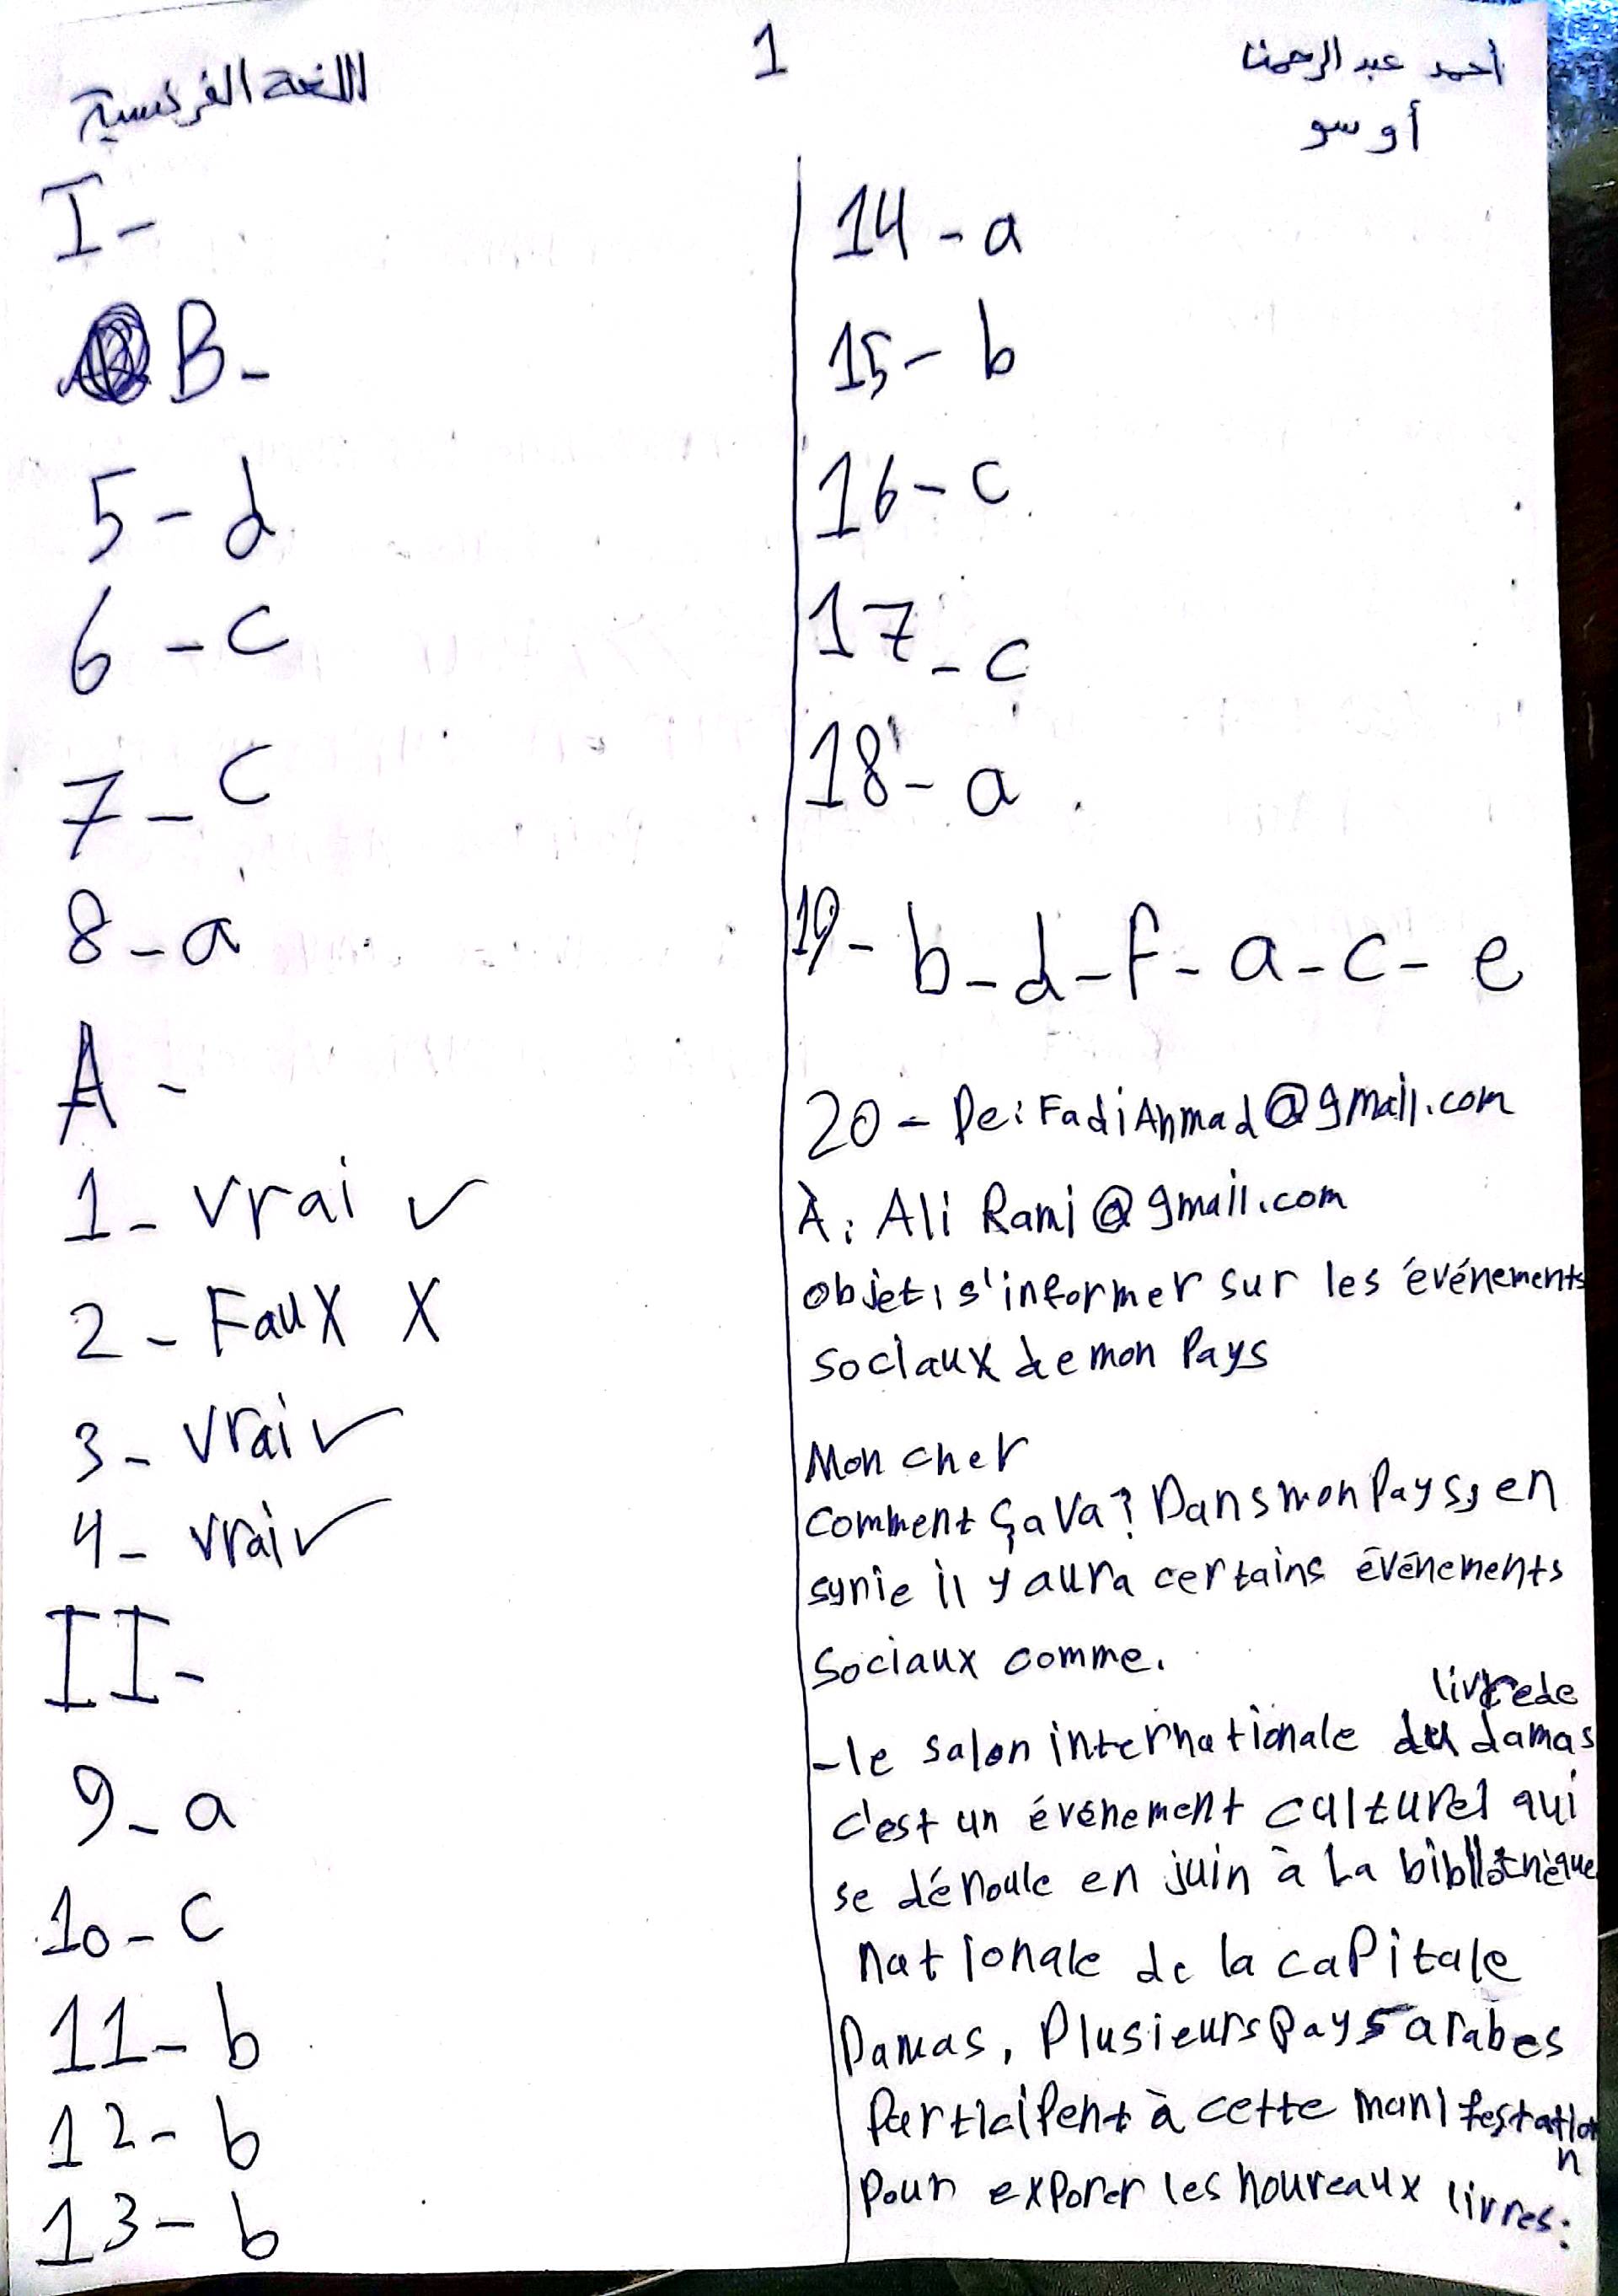 اللغة الفرنسية
1
احمد عبد الرحمن
أوسو
I-
B-
5-d
6-c
7-c
8-a
A-
1-vrai ✓
2-Faux X
3-vrai ✓
4-vrai ✓
II-
9-a
10-c
11-b
12-b
13-b
14-a
15-b
16-c
17-c
18-a
19-b-d-f-a-c-e
20-De: FadiAhmad@gmail.com
À: Ali Rami@gmail.com
objet: s'informer sur les événements
sociaux de mon Pays
Mon cher
comment ça va? Dans mon Pays, en
syrie il y aura certains événements
sociaux comme.
livre de
-le salon internationale du damas
c'est un événement culturel qui
se déroule en juin à La bibliothèque
nationale de la capitale
Damas, Plusieurs Pays arabes
Participent à cette manifestation
n
pour exporer les nouveaux livres: